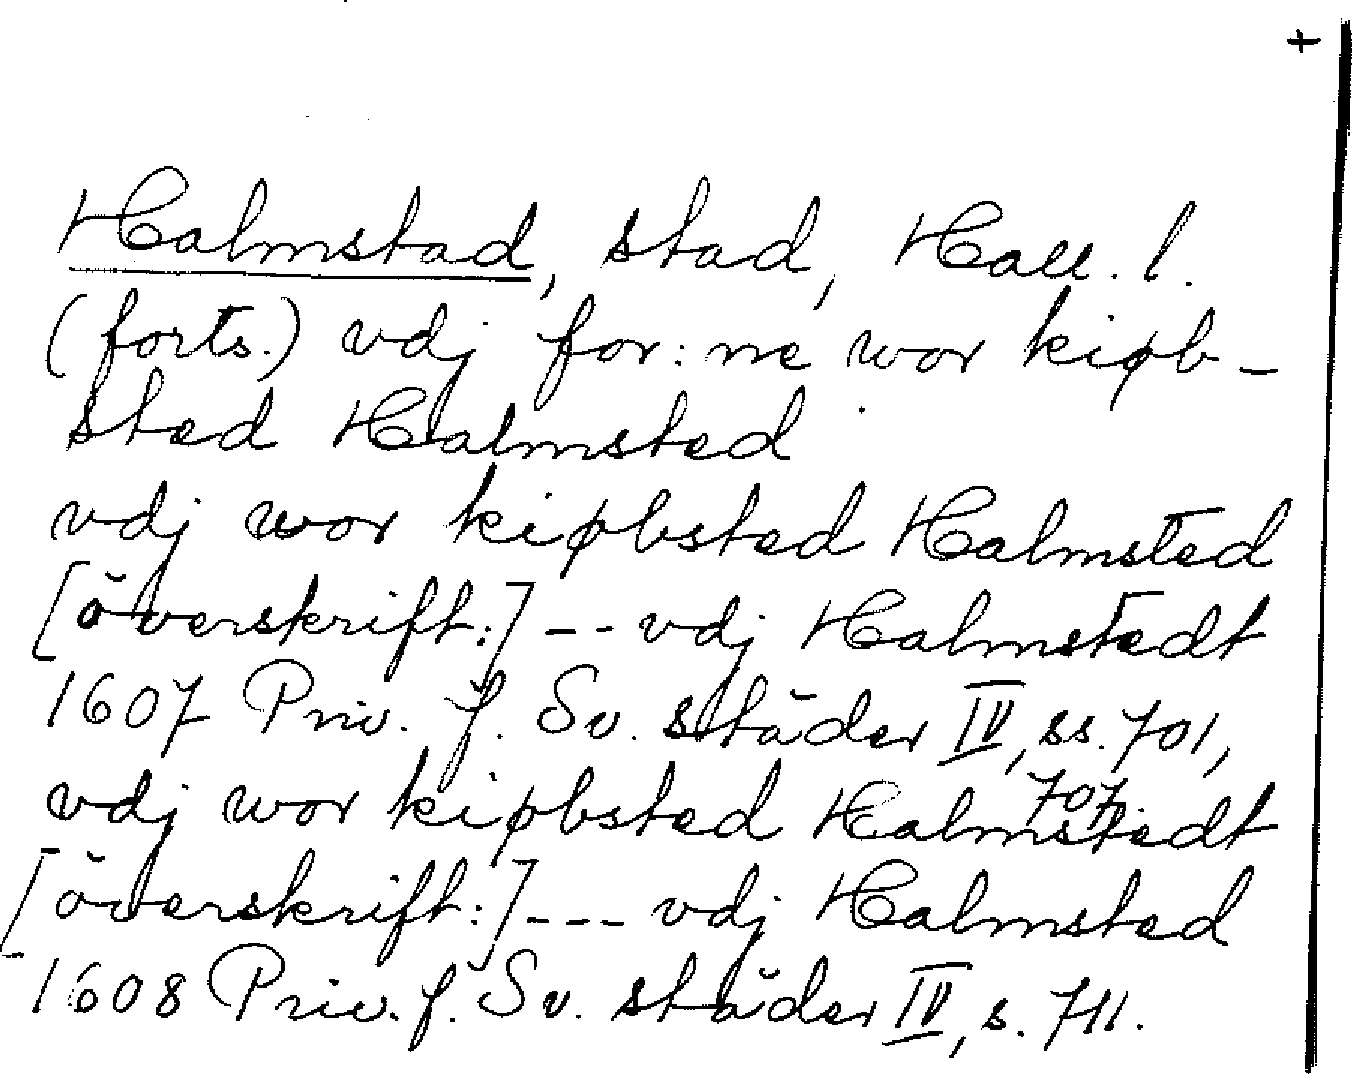 +
Halmstad, stad, Hall. l.
(forts.) vdj for:ne wor kiøb-
sted Halmsted
vdj wor kiøbsted Halmsted
[överskrift:] --- vdj Halmstedt
1607 Priv. f. Sv. städer IV, ss. 701,
707.
vdj wor kiøbsted Halmstedt
[överskrift:] --- vdj Halmsted
1608 Priv. f. Sv. städer IV, s. 711.